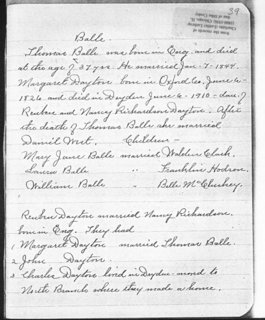 39
Balle
Thomas Balle was born in Eng. and died
at the age of 37 yrs. He married Jan-7-1844.
Margaret Dayton born in Oxford Co. June-6-
1826 and died in Dryden June-6-1910-dau. of
Reuben and Nancy Richardson Dayton. After
the death of Thomas Balle she married
Daniel West. Children-
Mary Jane Balle married Walden Clark.
Laura Balle " Franklin Hodson.
William Balle " Balle
Reuben Dayton married Nancy Richardson
born in Eng. They had
1 Margaret Dayton married Thomas Balle.
2 John Dayton.
3 Charles Dayton lived in Dryden-moved to
North Branch where they made a home.